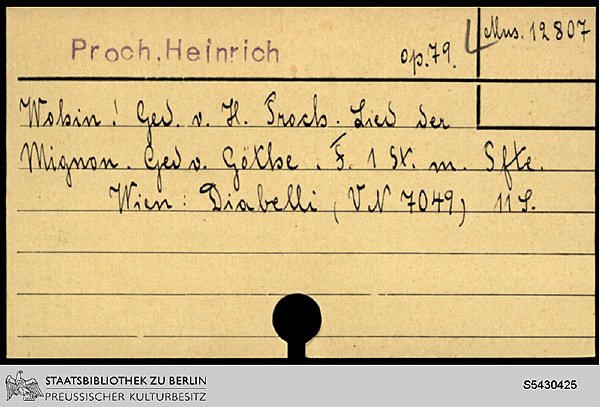 Proch, Heinrich
op. 79.
Mus. 12807
Wohin! Ged. v. H. Proch. Lied der
Mignon. Ged v. Göthe. F. 1 St. m. Pfte.
Wien: Diabelli (VN 7049) 11 S.
STAATSBIBLIOTHEK ZU BERLIN
PREUSSISCHER KULTURBESITZ
S5430425